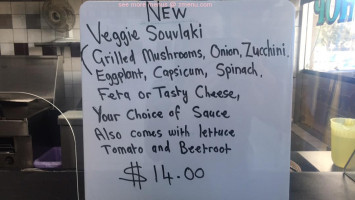 see more menus @ zmenu.com
NEW
Veggie Souvlaki
(Grilled Mushrooms, Onion, Zucchini,
Eggplant, Capsicum, Spinach,
Feta or Tasty Cheese,
Your Choice of Sauce
Also comes with lettuce
Tomato and Beetroot
$14.00